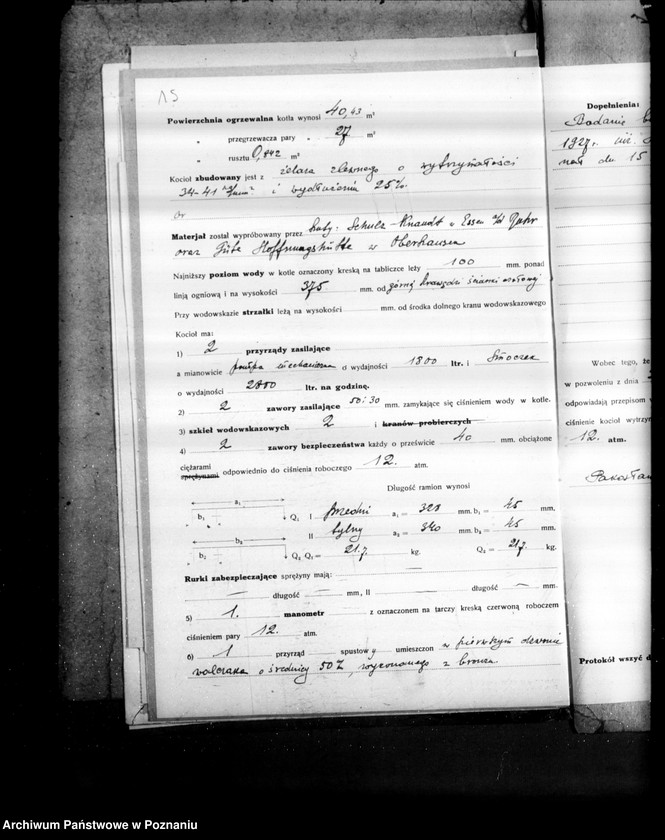 15
Powierzchnia ogrzewalna kotła wynosi 40,43 m²
" przegrzewacza pary " 27 m²
" rusztu 0,842 m²
Kocioł zbudowany jest z żelaza zlewnego o wytrzymałości
34-41 kg/mm² i wydłużeniu 25%.
Materjał został wypróbowany przez huty: Schulz Knaudt w Essen a/d Ruhr
oraz Gute Hoffnungshütte w Oberhausen
Najniższy poziom wody w kotle oznaczony kreską na tabliczce leży 100 mm. ponad
linją ogniową i na wysokości 375 mm. od górnej krawędzi
Przy wodowskazie strzałki leżą na wysokości mm. od środka dolnego kranu wodowskazowego
Kocioł ma:
1) 2 przyrządy zasilające
a mianowicie pompa mechaniczna o wydajności 1800 ltr. i Smoczek
o wydajności 2800 ltr. na godzinę.
2) 2 zawory zasilające 50 i 30 mm. zamykające się ciśnieniem wody w kotle.
3) szkieł wodowskazowych 2 i kranów probierczych
4) 2 zawory bezpieczeństwa każdy o prześwicie 40 mm. obciążone
ciężarami
sprężynami odpowiednio do ciśnienia roboczego 12. atm.
Długość ramion wynosi
a₁ b₁ Q₁ I przedni a₁ = 328 mm. b₁ = 45 mm.
a₂ b₂ II tylny a₂ = 340 mm. b₂ = 45 mm.
Q₂ Q₁ = 21.7 kg. Q₂ = 21.7 kg.
Rurki zabezpieczające sprężyny mają:
długość mm, II długość mm.
5) 1. manometr z oznaczonem na tarczy kreską czerwoną roboczem
ciśnieniem pary 12. atm.
6) 1 przyrząd spustowy umieszczon w pierwszym dzwonie
walczaka o średnicy 50 wykonanego z bronzu.
Dopełnienia:
Badanie
1927 r.
dn. 15
Wobec tego, że
w pozwoleniu z dnia
odpowiadają przepisom
ciśnienie kocioł wytrzym
12. atm.
Protokół wszyć d
Archiwum Państwowe w Poznaniu